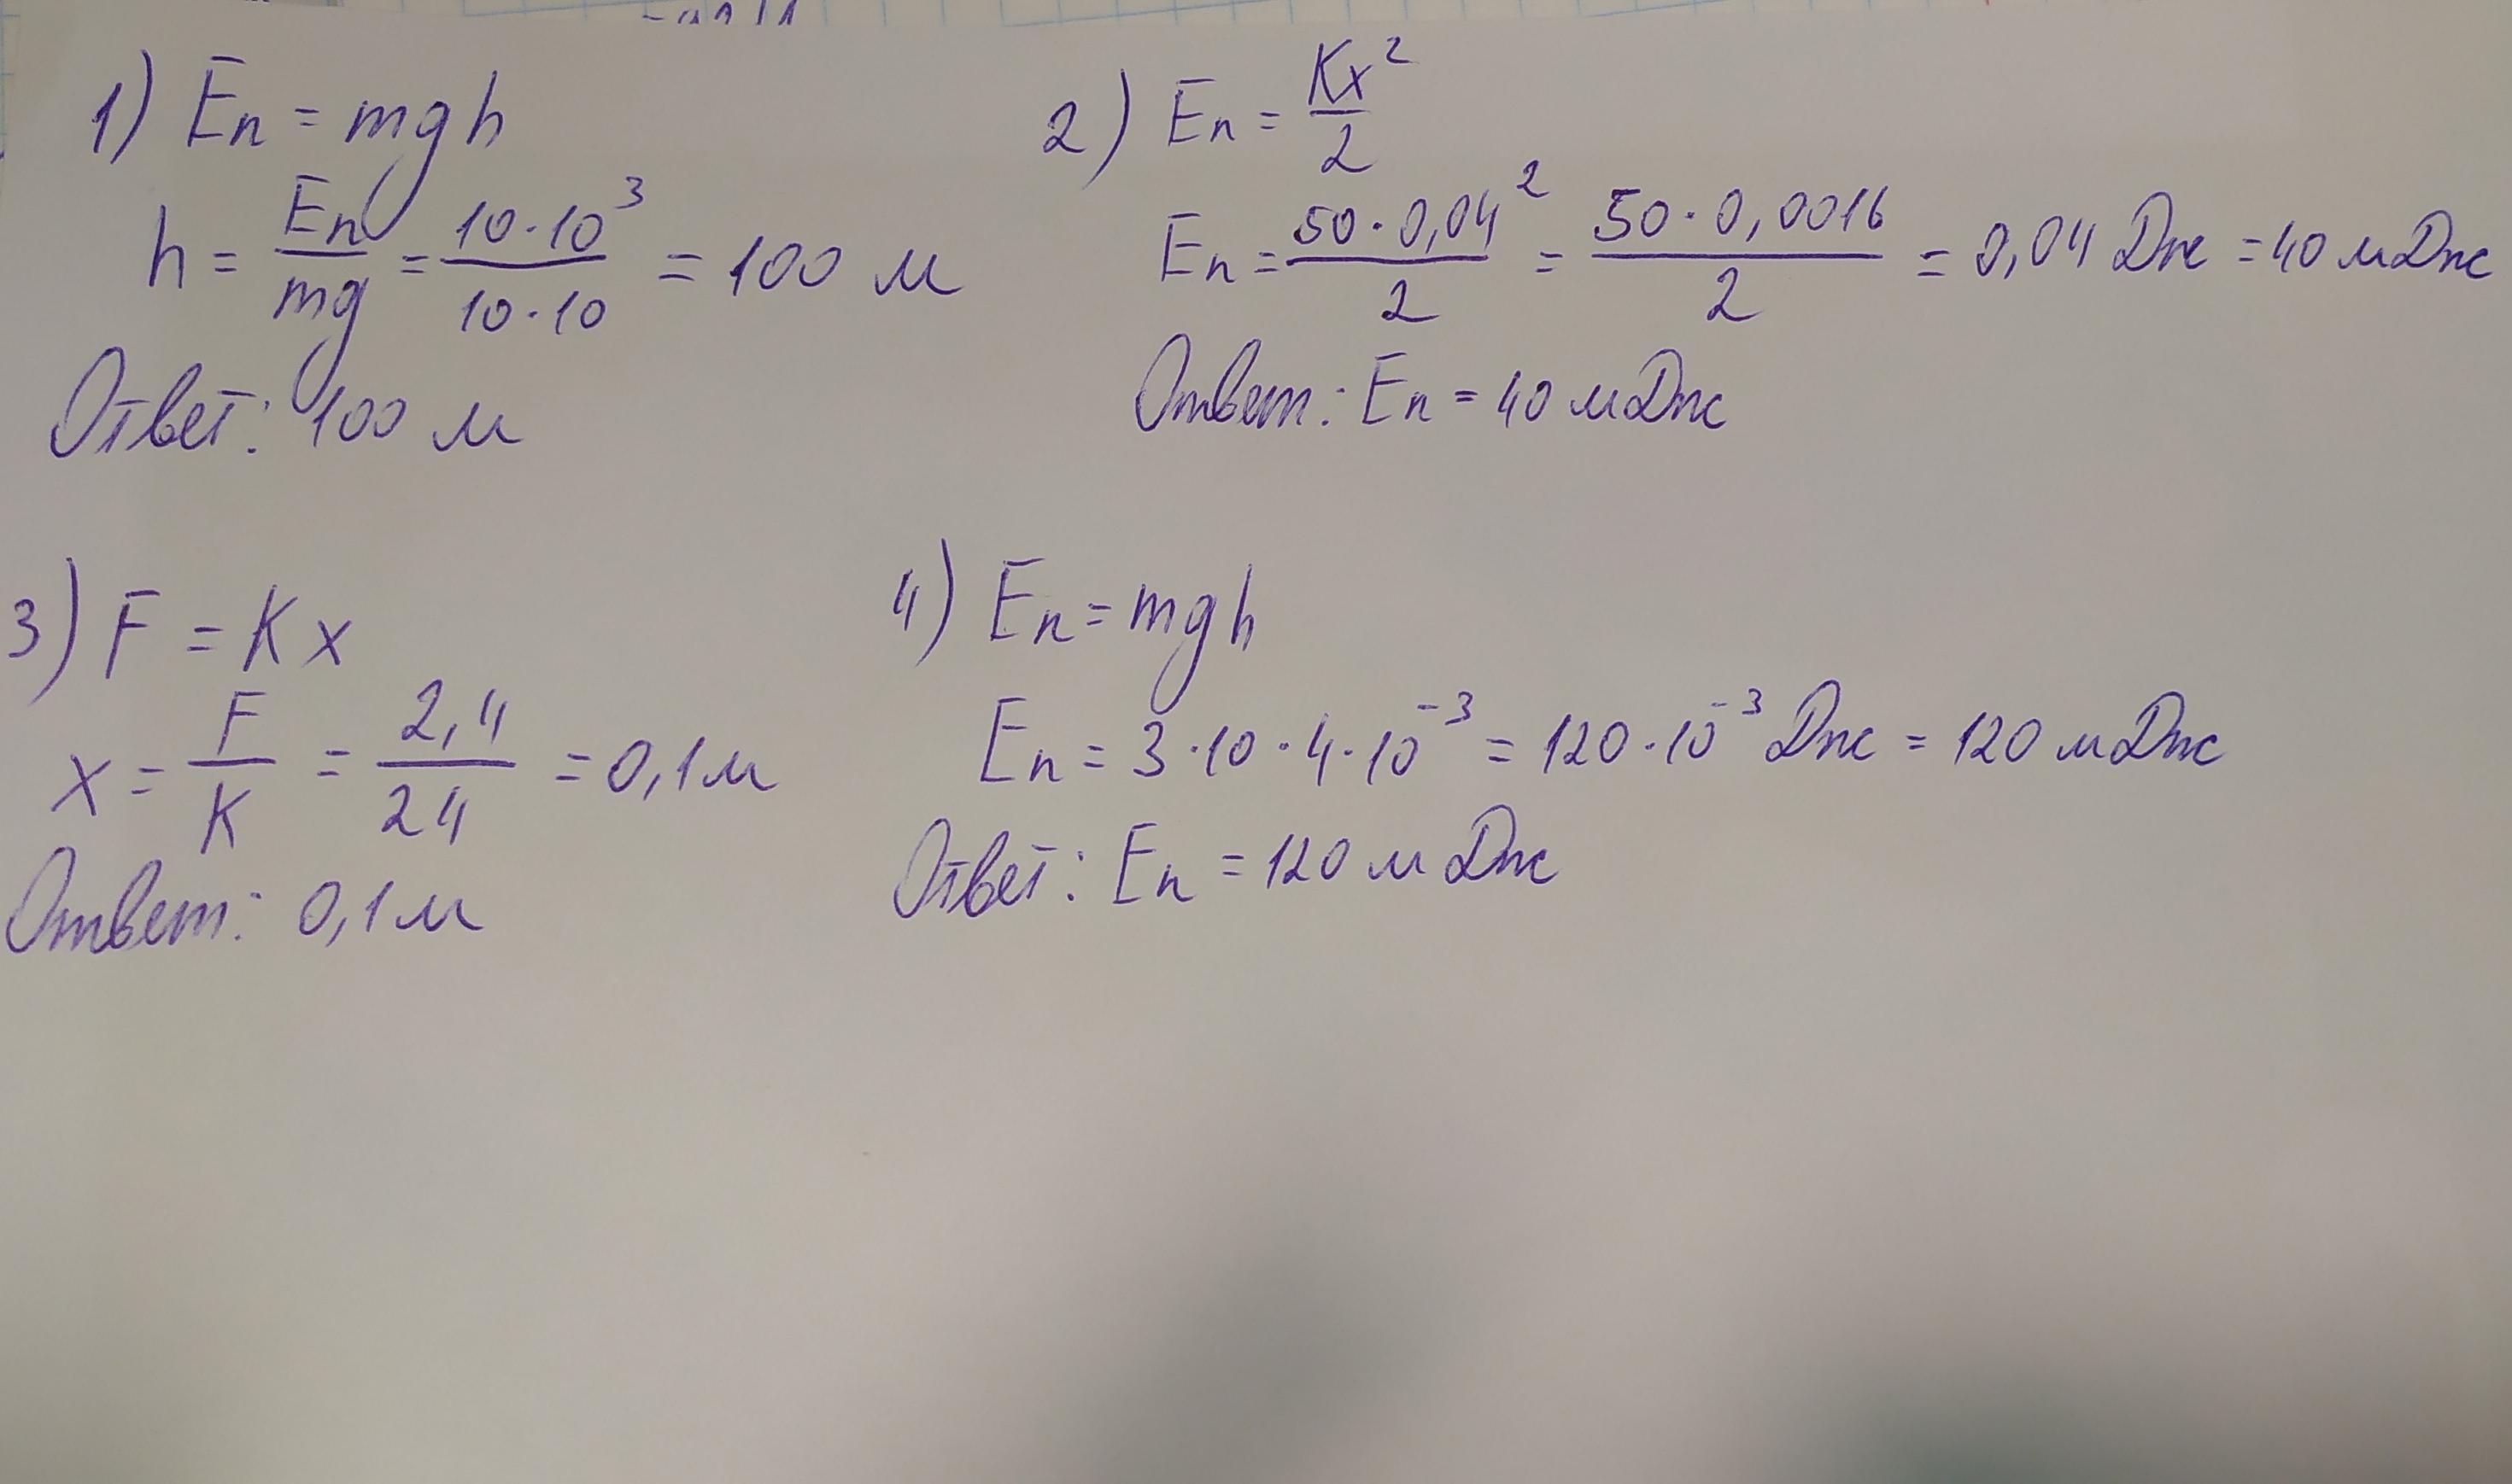 1) Eп = mgh
h = Eп/mg = 10·10³/10·10 = 100 м
Ответ: 100 м
2) Eп = Kx²/2
Eп = 50·0,04²/2 = 50·0,0016/2 = 0,04 Дж = 40 мДж
Ответ: Eп = 40 мДж
3) F = Kx
x = F/K = 2,4/24 = 0,1 м
Ответ: 0,1 м
4) Eп = mgh
Eп = 3·10·4·10⁻³ = 120·10⁻³ Дж = 120 мДж
Ответ: Eп = 120 мДж